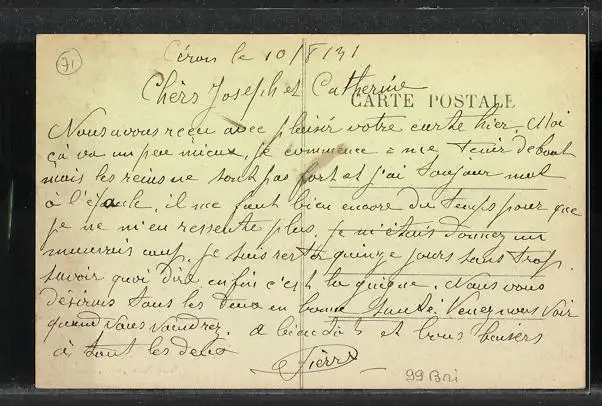 71
Céron le 10/8/31
Chèrs Joseph et Catherine
CARTE POSTALE
Nous avons reçu avec plaisir votre carte hier. Moi
çà va un peu mieux, je commence a me tenir debout
mais les reins ne sont pas fort et j'ai toujour mal
à l'épaule, il me faut bien encore du temps pour que
je ne m'en ressente plus. Je m'étais donnez un
mauvais coup, je suis resté quinze jours sans trop
savoir quoi dire enfin c'est la guigne. Nous vous
désirons tous les deux en bonne santé. Venez nous voir
quand vous voudrez. a bientôt et bons baisers
à tout les deux
Pierre
99 Bri